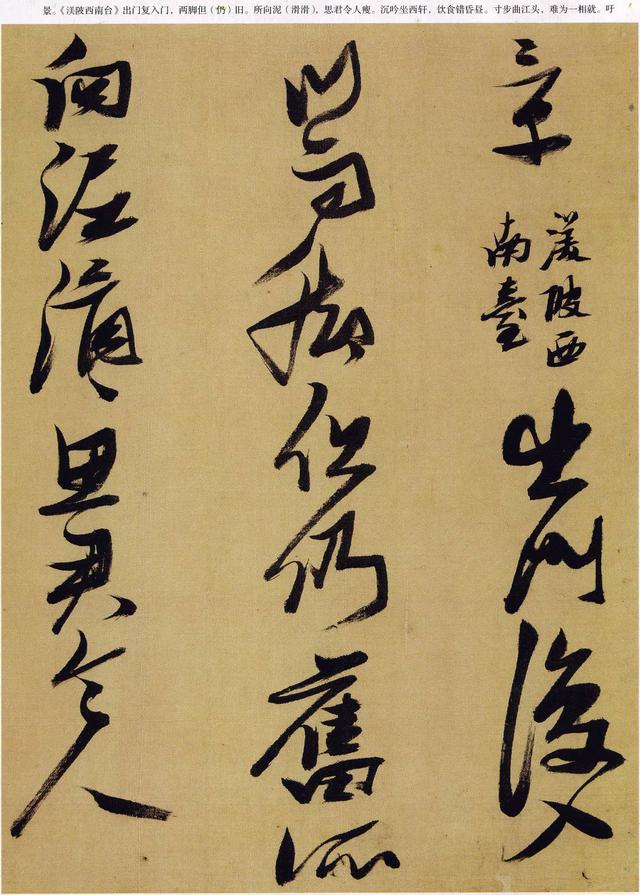 景。《渼陂西南台》出门复入门，两脚但（仍）旧。所向泥（滑滑），思君令人瘦。沉吟坐西轩，饮食错昏昼。寸步曲江头，难为一相就。吁
章
渼陂西
南臺
出门復入
门雨脚但仍舊所
向泥滑〻思君令人